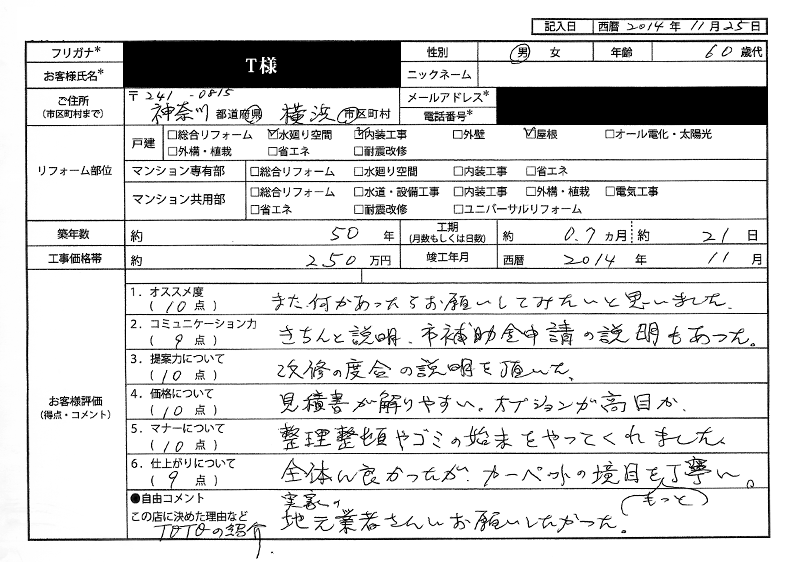 記入日 西暦 2014 年 11 月 25 日
フリガナ* T様 性別 男 女 年齢 60 歳代
お客様氏名* ニックネーム
ご住所 (市区町村まで) 〒241-0815 神奈川 都道府県 横浜 市区町村 メールアドレス*
電話番号*
リフォーム部位 戸建 □総合リフォーム ☑水廻り空間 ☑内装工事 □外壁 ☑屋根 □オール電化・太陽光
□外構・植栽 □省エネ □耐震改修
マンション専有部 □総合リフォーム □水廻り空間 □内装工事 □省エネ
マンション共用部 □総合リフォーム □水道・設備工事 □内装工事 □外構・植栽 □電気工事
□省エネ □耐震改修 □ユニバーサルリフォーム
築年数 約 50 年 工期 (月数もしくは日数) 約 0.7 ヵ月 約 21 日
工事価格帯 約 250 万円 竣工年月 西暦 2014 年 11 月
お客様評価 (得点・コメント)
1.オススメ度 (10点) また何かあったらお願いしてみたいと思いました.
2.コミュニケーション力 (9点) きちんと説明、市補助金申請の説明もあった。
3.提案力について (10点) 改修の度合の説明を頂いた、
4.価格について (10点) 見積書が解りやすい。オプションが高目か、
5.マナーについて (10点) 整理整頓やゴミの始末をやってくれました、
6.仕上がりについて (9点) 全体に良かったが、カーペットの境目を丁寧に。
(もっと)
●自由コメント
この店に決めた理由など
TOTOの紹介、
実家の
地元業者さんにお願いしたかった。